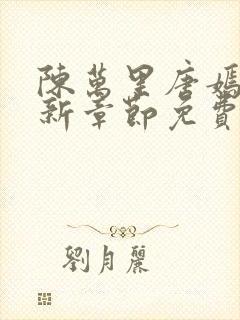 陳萬里唐嫣
新章節免費
劉月麗